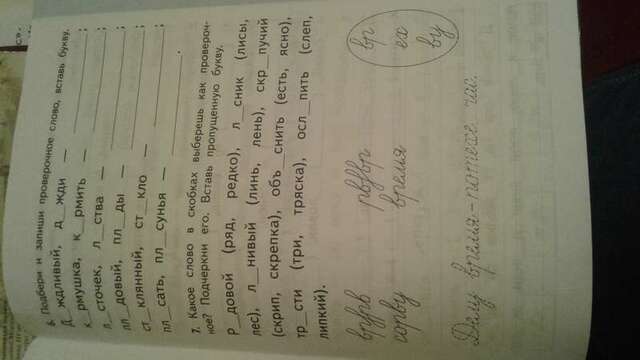 6. Подбери и запиши проверочное слово, вставь букву.
д__ждливый, д__жди — ;
к__рмушка, к__рмить — ;
л__сточек, л__ства — ;
пл__довый, пл__ды — ;
ст__клянный, ст__кло — ;
пл__сать, пл__сунья — .
7. Какое слово в скобках выберешь как провероч-
ное? Подчеркни его. Вставь пропущенную букву.
р__довой (ряд, редко), л__сник (лисы,
лес), л__нивый (линь, лень), скр__пучий
(скрип, скрепка), объ__снить (есть, ясно),
тр__сти (три, тряска), осл__пить (слеп,
липкий).
врурв рвуврь вр
сорву время ех
ву
Делу время – потехе час.